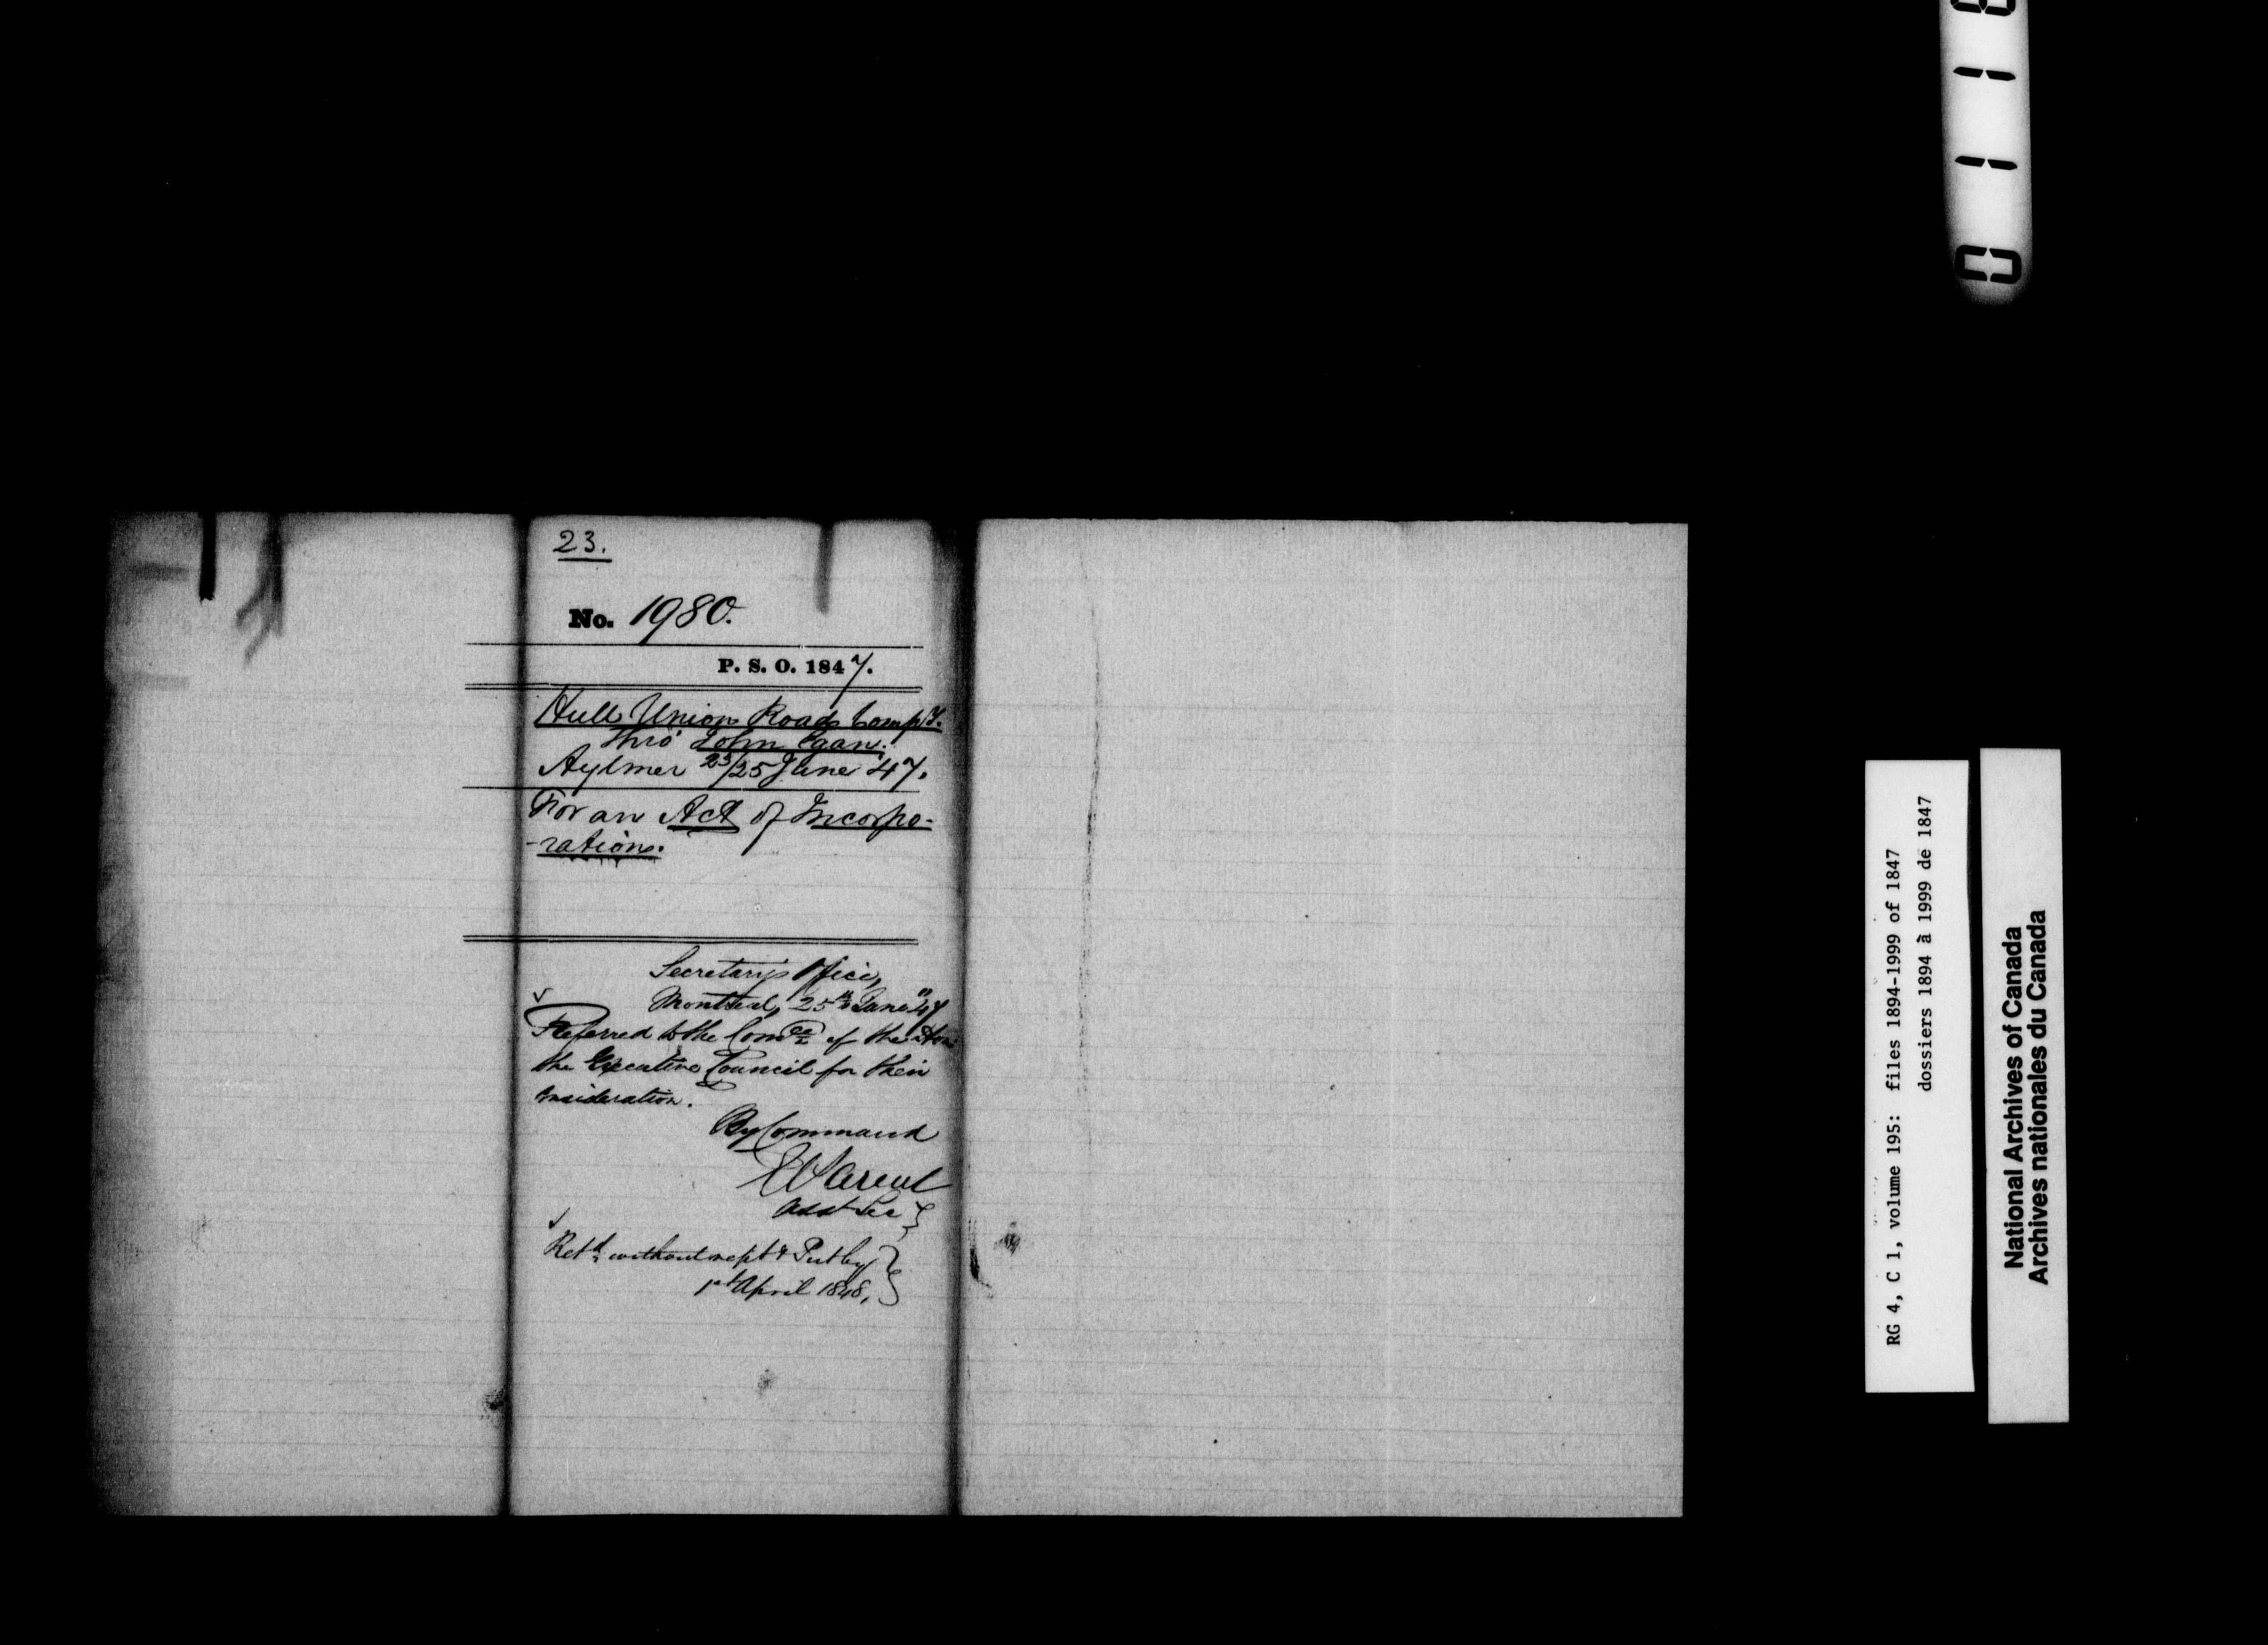 23.
No. 1980.
P. S. O. 1847.
Hull Union Road Compy.
thro' John Egan.
Aylmer 23/25 June '47.
For an Act of Incorpo-
-ration.
Secretary's Office,
Montreal, 25th June "47
Referred to the Comee of the Hon
the Executive Council for their
consideration.
By Command
E Parent
Asst Sec
Retd without rept & Put by
1st April 1848.
RG 4, C 1, volume 195: files 1894-1999 of 1847
dossiers 1894 à 1999 de 1847
National Archives of Canada
Archives nationales du Canada